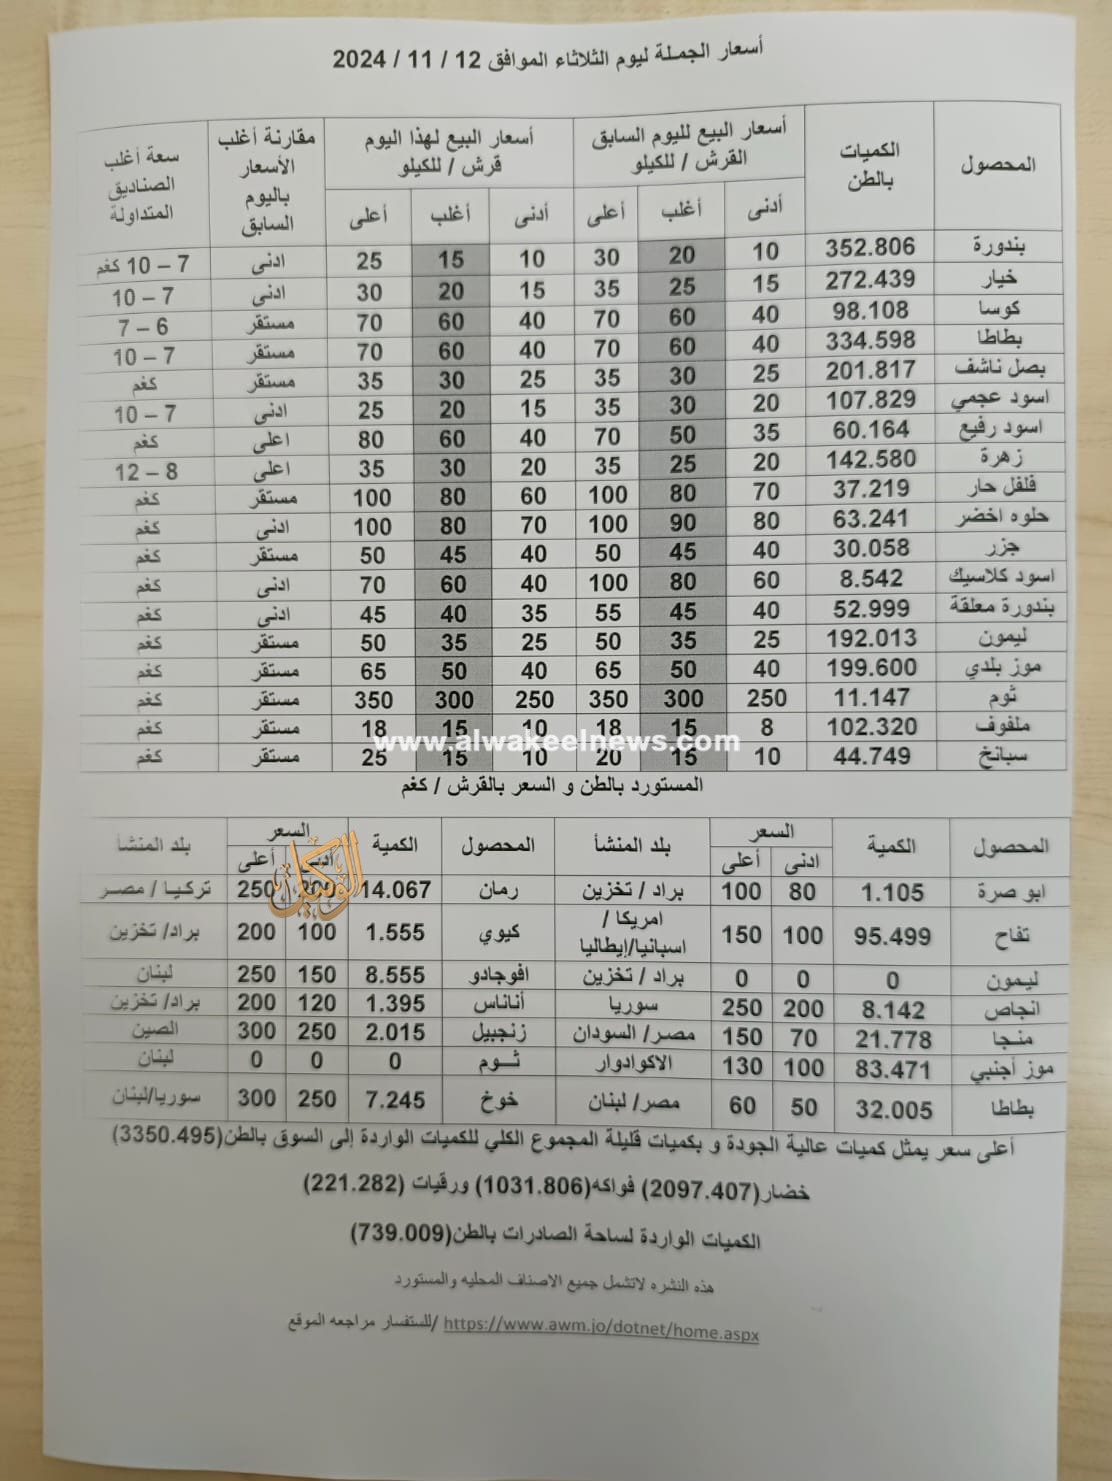 أسعار الجملة ليوم الثلاثاء الموافق 12 / 11 / 2024
المحصول | الكميات بالطن | أسعار البيع لليوم السابق القرش / للكيلو | أسعار البيع لهذا اليوم قرش / للكيلو | مقارنة أغلب الأسعار باليوم السابق | سعة أغلب الصناديق المتداولة
أدنى | أغلب | أعلى | أدنى | أغلب | أعلى
بندورة | 352.806 | 10 | 20 | 30 | 10 | 15 | 25 | ادنى | 7 – 10 كغم
خيار | 272.439 | 15 | 25 | 35 | 15 | 20 | 30 | ادنى | 7 – 10
كوسا | 98.108 | 40 | 60 | 70 | 40 | 60 | 70 | مستقر | 6 – 7
بطاطا | 334.598 | 40 | 60 | 70 | 40 | 60 | 70 | مستقر | 7 – 10
بصل ناشف | 201.817 | 25 | 30 | 35 | 25 | 30 | 35 | مستقر | كغم
اسود عجمي | 107.829 | 20 | 30 | 35 | 15 | 20 | 25 | ادنى | 7 – 10
اسود رفيع | 60.164 | 35 | 50 | 70 | 40 | 60 | 80 | اعلى | كغم
زهرة | 142.580 | 20 | 25 | 35 | 20 | 30 | 35 | اعلى | 8 – 12
فلفل حار | 37.219 | 70 | 80 | 100 | 60 | 80 | 100 | مستقر | كغم
حلوه اخضر | 63.241 | 80 | 90 | 100 | 70 | 80 | 100 | ادنى | كغم
جزر | 30.058 | 40 | 45 | 50 | 40 | 45 | 50 | مستقر | كغم
اسود كلاسيك | 8.542 | 60 | 80 | 100 | 40 | 60 | 70 | ادنى | كغم
بندورة معلقة | 52.999 | 40 | 45 | 55 | 35 | 40 | 45 | ادنى | كغم
ليمون | 192.013 | 25 | 35 | 50 | 25 | 35 | 50 | مستقر | كغم
موز بلدي | 199.600 | 40 | 50 | 65 | 40 | 50 | 65 | مستقر | كغم
ثوم | 11.147 | 250 | 300 | 350 | 250 | 300 | 350 | مستقر | كغم
ملفوف | 102.320 | 8 | 15 | 18 | 10 | 15 | 18 | مستقر | كغم
www.alwakeelnews.com
سبانخ | 44.749 | 10 | 15 | 20 | 10 | 15 | 25 | مستقر | كغم
المستورد بالطن و السعر بالقرش / كغم
المحصول | الكمية | السعر | بلد المنشأ | المحصول | الكمية | السعر | بلد المنشأ
ادنى | أعلى | أدنى | أعلى
الوكيل
ابو صرة | 1.105 | 80 | 100 | براد / تخزين | رمان | 14.067 | 200 | 250 | تركيا / مصر
تفاح | 95.499 | 100 | 150 | امريكا / اسبانيا/إيطاليا | كيوي | 1.555 | 100 | 200 | براد/ تخزين
ليمون | 0 | 0 | 0 | براد / تخزين | افوجادو | 8.555 | 150 | 250 | لبنان
انجاص | 8.142 | 200 | 250 | سوريا | أناناس | 1.395 | 120 | 200 | براد/ تخزين
منجا | 21.778 | 70 | 150 | مصر/ السودان | زنجبيل | 2.015 | 250 | 300 | الصين
موز أجنبي | 83.471 | 100 | 130 | الاكوادوار | ثـــوم | 0 | 0 | 0 | لبنان
بطاطا | 32.005 | 50 | 60 | مصر/ لبنان | خوخ | 7.245 | 250 | 300 | سوريا/لبنان
أعلى سعر يمثل كميات عالية الجودة و بكميات قليلة المجموع الكلي للكميات الواردة إلى السوق بالطن(3350.495)
خضار(2097.407) فواكه(1031.806) ورقيات (221.282)
الكميات الواردة لساحة الصادرات بالطن(739.009)
هذه النشره لاتشمل جميع الاصناف المحليه والمستورد
https://www.awm.jo/dotnet/home.aspx /للستفسار مراجعه الموقع